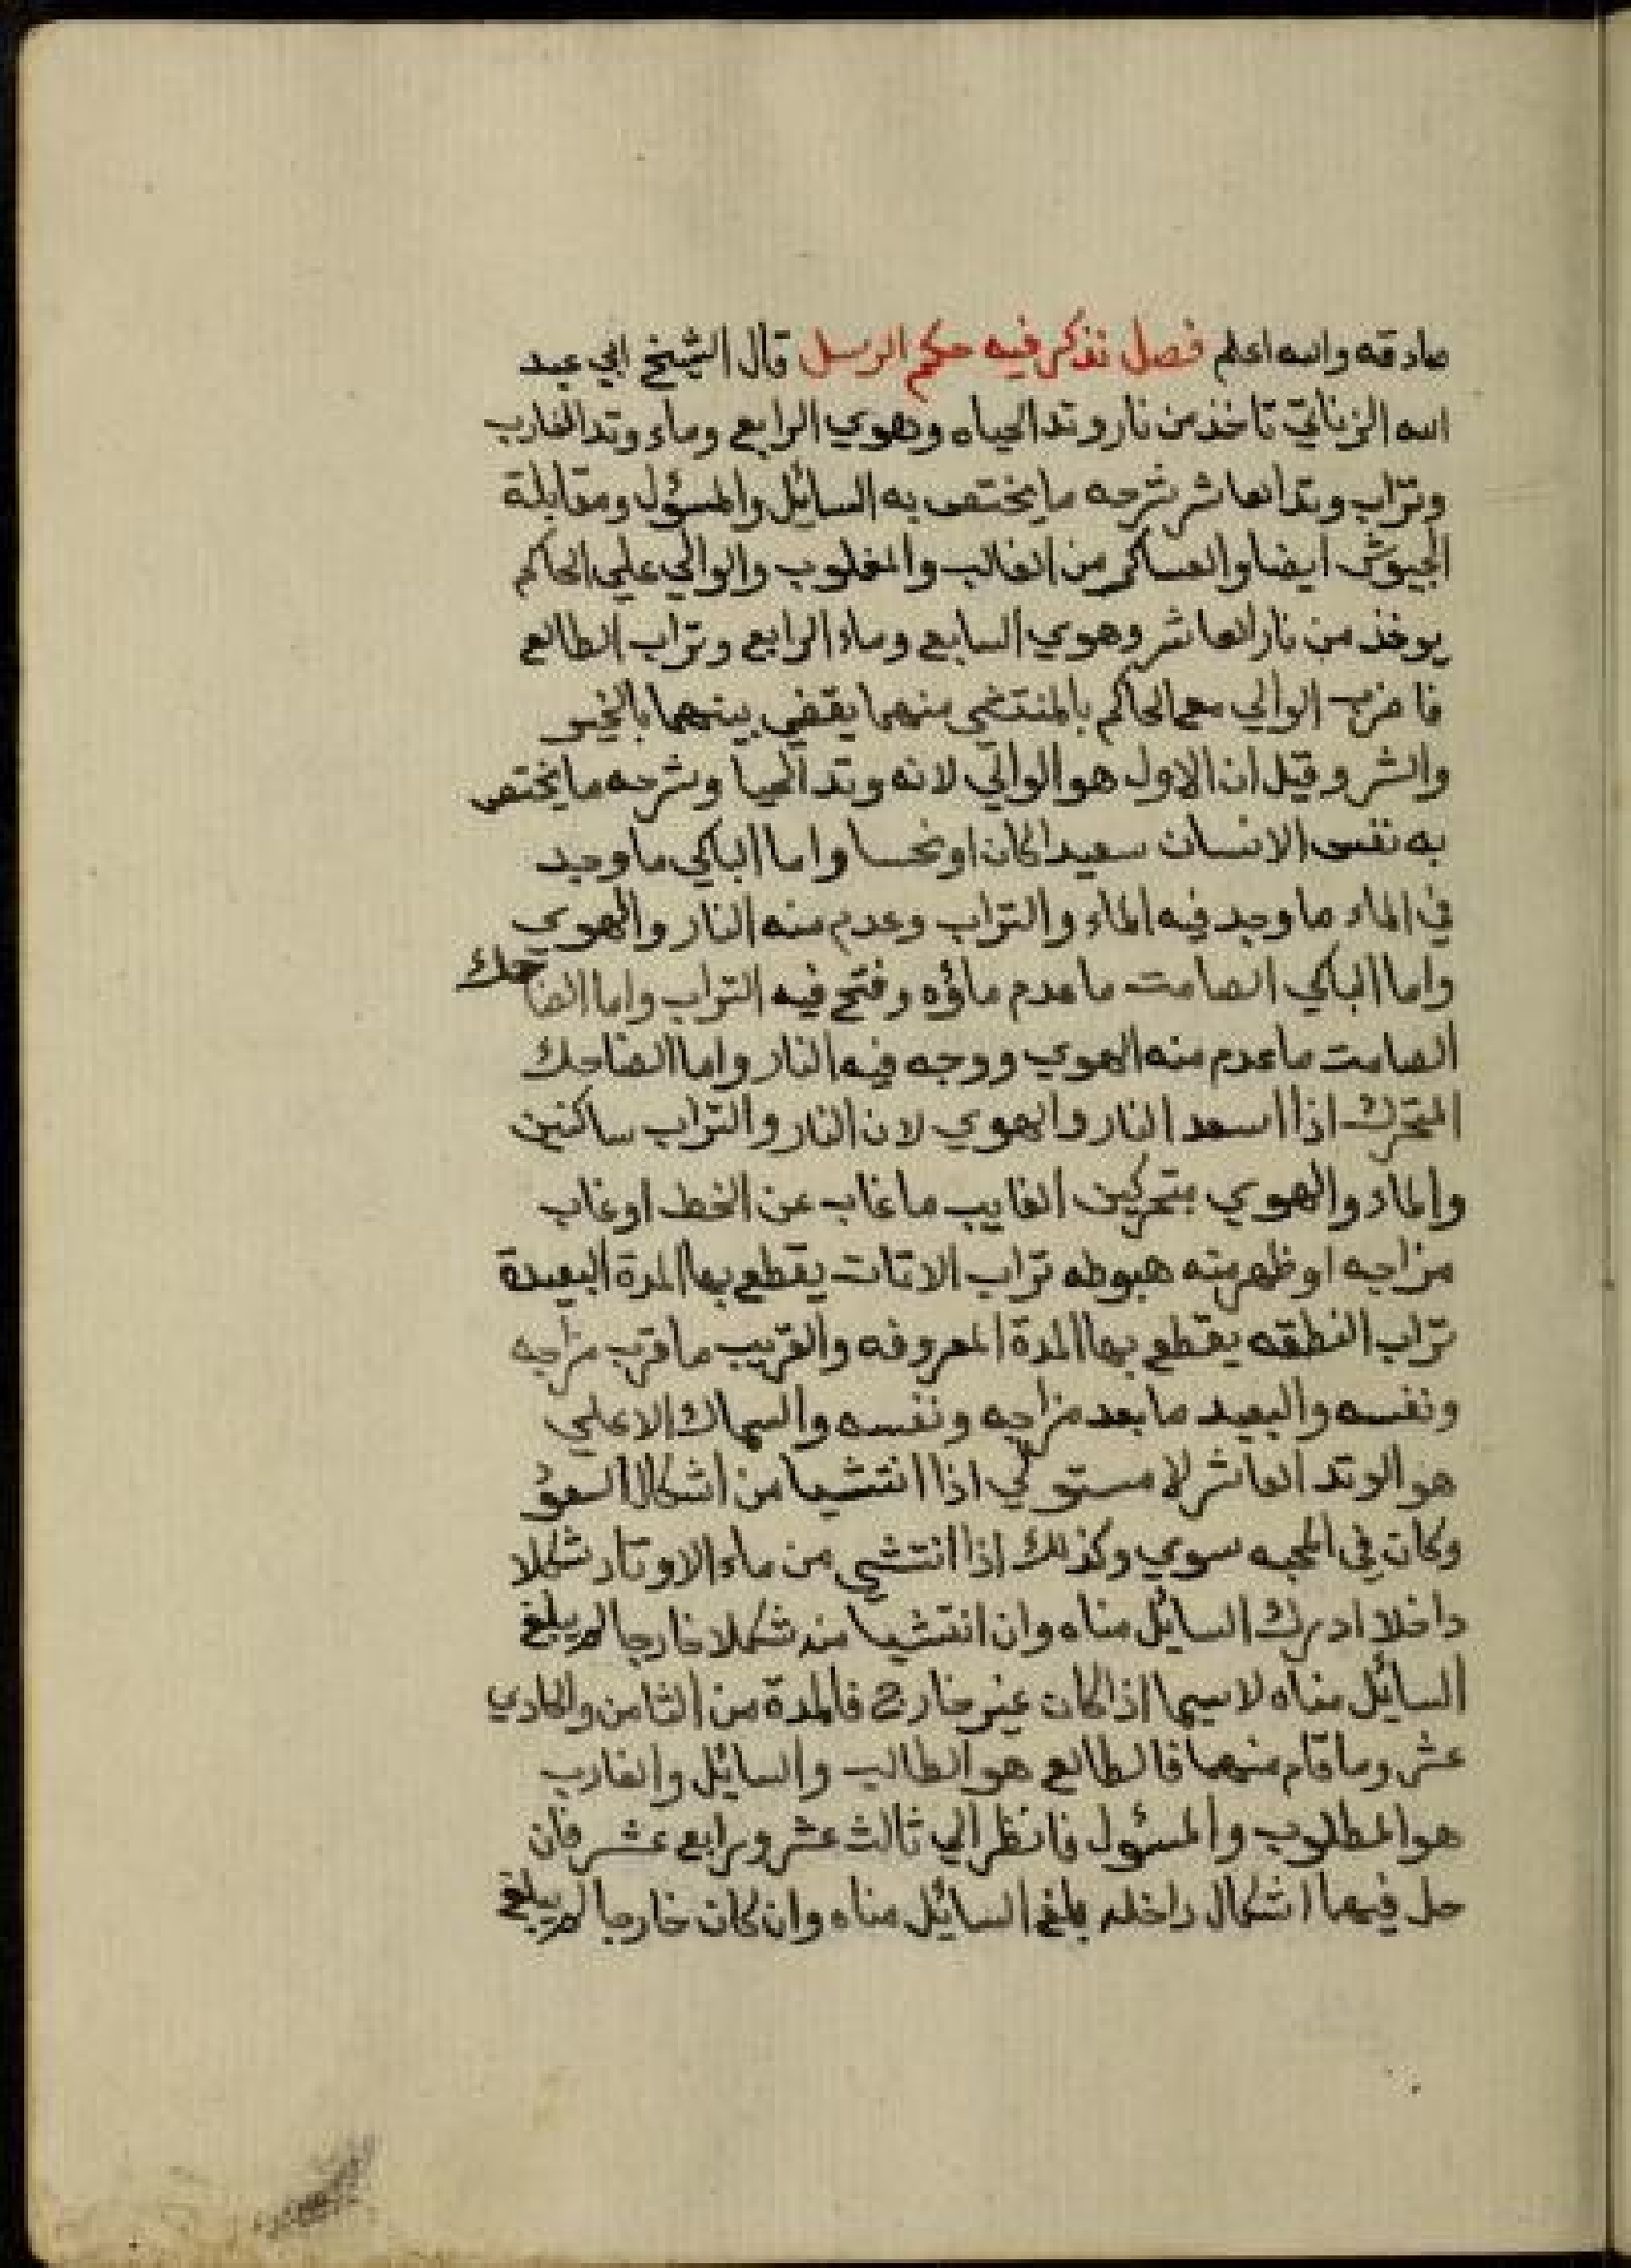 صادقه والله اعلم فصل نذكر فيه حكم الرسل قال الشيخ ابي عبد
الله الزناتي تاخذ من نار وتد الحياه وهوي الرابع وماء وتد الغارب
وتراب وتد العاشر شرحه ما يختص به السائل والمسؤل ومقابلة
الجيوش ايضا والعساكر من الغالب والمغلوب والوالي علي الحاكم
يوخذ من نار العاشر وهوي السابع وماء الرابع وتراب الطالع
فاضرب الوالي مع الحاكم بالمنتشي منهما يقضي بينهما بالخير
والشر وقيل ان الاول هو الوالي لانه وتد الحيا وشرحه ما يختص
به نفس الانسان سعيدا كان او نحسا واما الباكي ما وجد
في الماء ما وجد فيه الماء والتراب وعدم منه النار والهوي
واما الباكي الصامت ما عدم ماؤه وفتح فيه التراب واما الضاحك
الصامت ما عدم منه الهوي ووجه فيه النار واما الضاحك
المتحرك اذا اسعد النار والهوي لان النار والتراب ساكنين
والماء والهوي متحركين الغايب ما غاب عن الخط او غاب
مزاجه او ظهر منه هبوطه تراب يقطع بها المدة البعيدة
تراب النطقه يقطع بها المدة المعروفه والقريب ما قرب مزاجه
ونفسه والبعيد ما بعد مزاجه ونفسه والسماك الاعلي
هو الوتد العاشر اذا انتشيا من اشكال
وكان في سوي وكذلك اذا انتشي من ماء الاوتاد شكلا
داخلا ادرك السائل مناه وان انتشيا منه شكلا خارجا لم يبلغ
السائل مناه لاسيما اذا كان غير خارج فالمدة من الثامن والحادي
عشر وما قام منهما فالطالع هو الطالب والسائل والغارب
هو المطلوب والمسؤل فانظر الي ثالث عشر ورابع عشر فان
حل فيهما اشكال داخله بلغ السائل مناه وان كان خارجا لم يبلغ